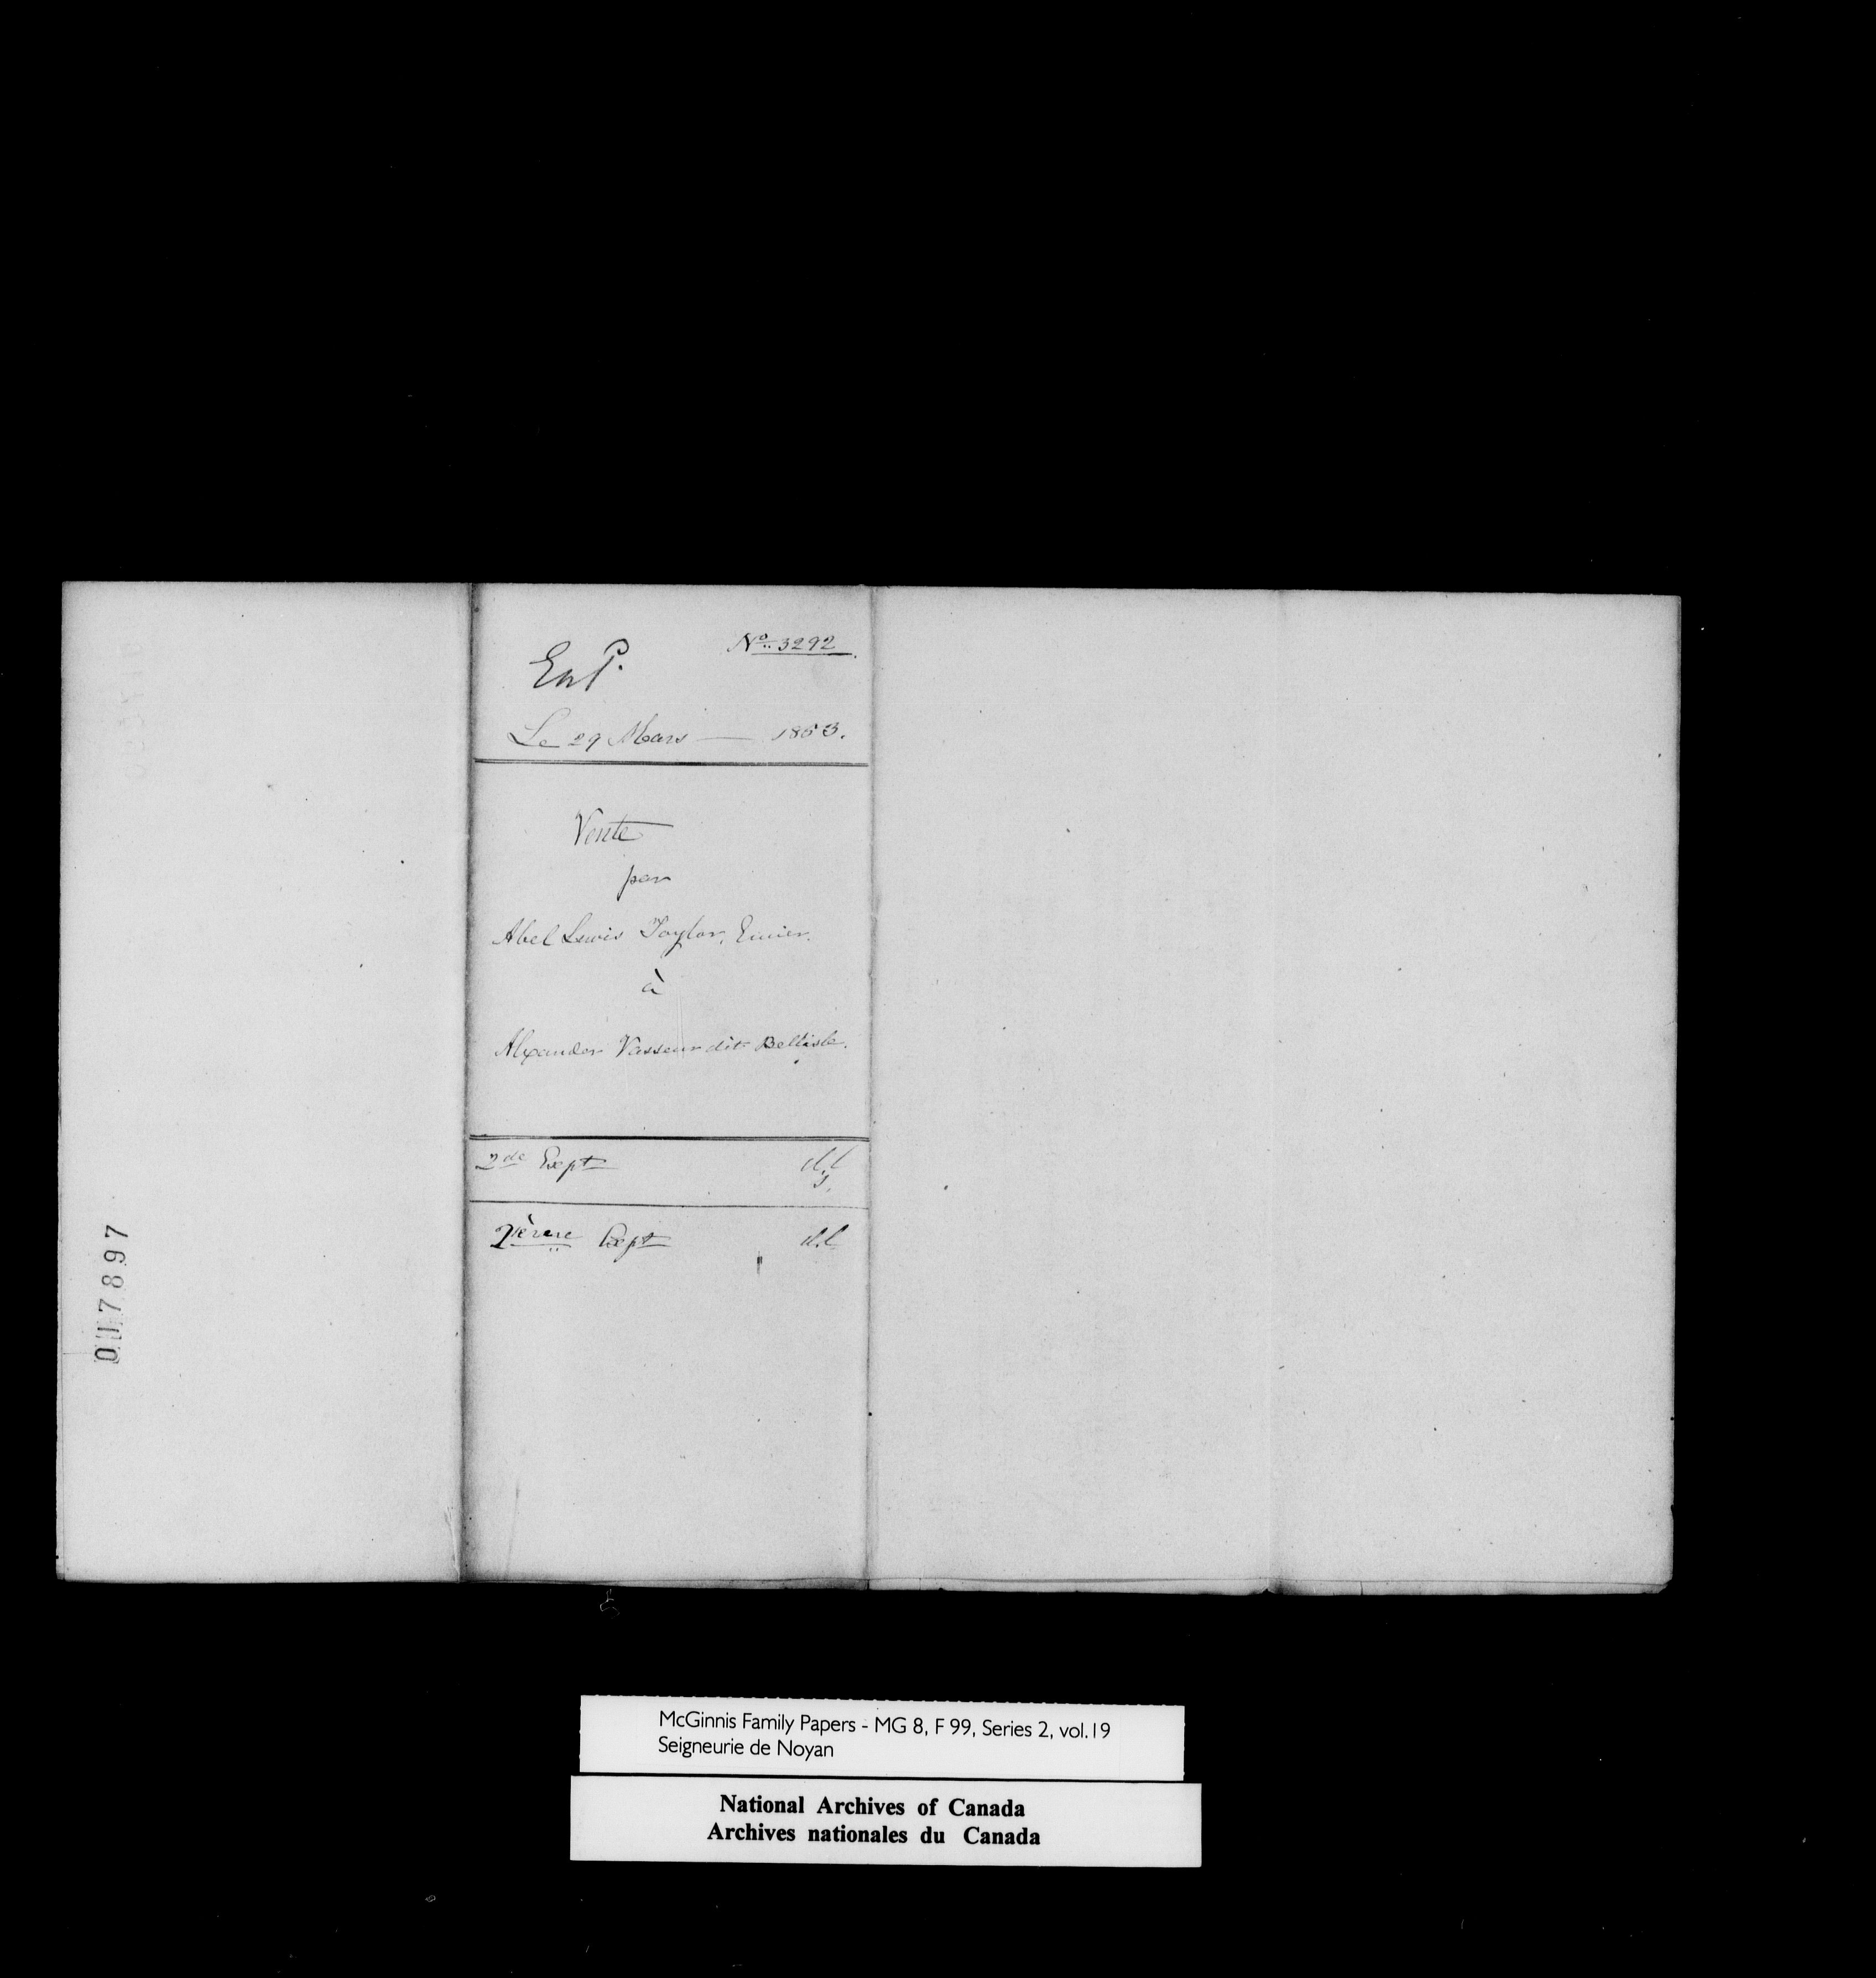 No. 3292
Le 29 Mars — 1853.
Vente
par
Abel Lewis Taylor, Ecuier.
à
Alexander Vasseur dit Bellisle.
2de Expt
2ième Expt
017897
McGinnis Family Papers - MG 8, F 99, Series 2, vol.19
Seigneurie de Noyan
National Archives of Canada
Archives nationales du Canada